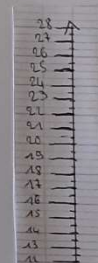 28
27
26
25
24
23
22
21
20
19
18
17
16
15
14
13